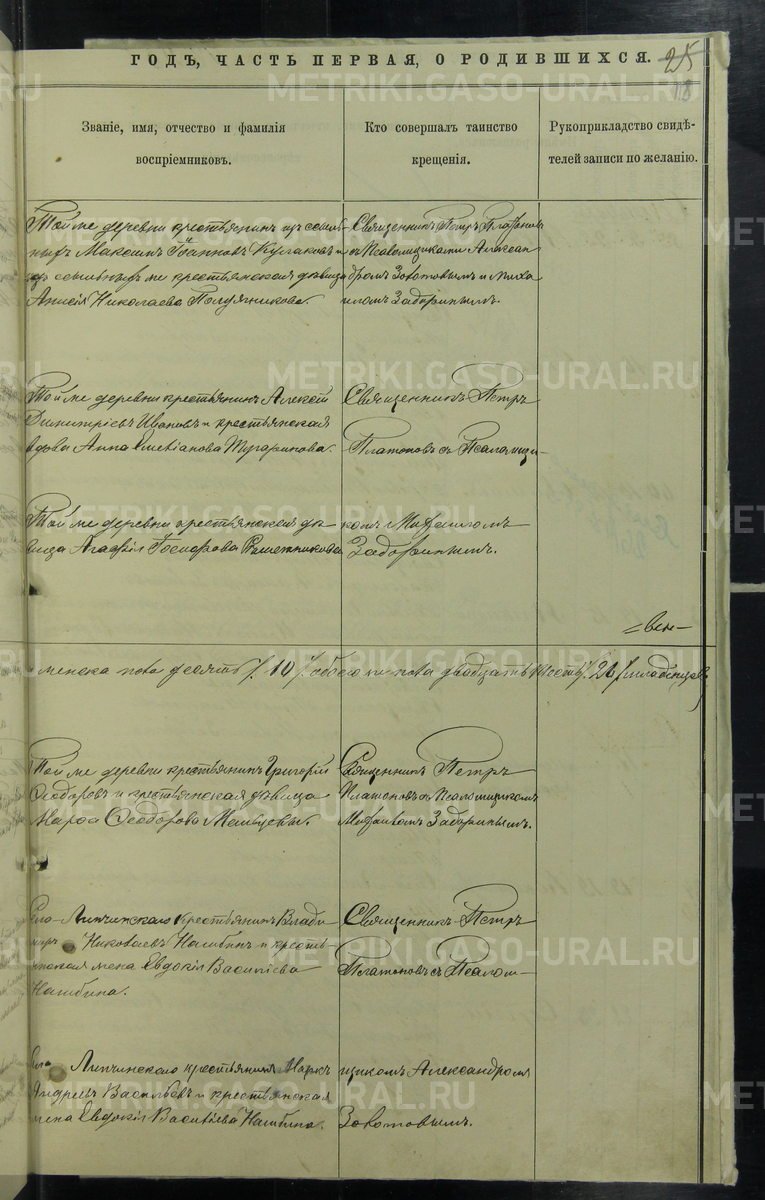 ГОДЪ, ЧАСТЬ ПЕРВАЯ, О РОДИВШИХСЯ.
25
18
Званіе, имя, отчество и фамилія
воспріемниковъ.
Кто совершалъ таинство
крещенія.
Рукоприкладство свидѣ-
телей записи по желанію.
Той же деревни крестьянинъ изъ ссыль-
ныхъ Максимъ Іоанновъ Кулаковъ и
изъ ссыльныхъ же крестьянская дѣвица
Анисія Николаева Полуяникова.
Священникъ Петръ Платоновъ
съ Псаломщиками Алексан
дромъ Золотовымъ и Миха
иломъ Задоринымъ.
Той же деревни крестьянинъ Алексій
Димитріевъ Ивановъ и крестьянская
вдова Анна Емеліанова Тугаринова.
Священникъ Петръ
Платоновъ съ Псаломщи-
Той же деревни крестьянская дѣ-
вица Агафія Решетникова
комъ Михаиломъ
Задоринымъ.
=вен=
женска пола десять /. 10 /. обоего пола двадцать шесть /. 26 /. младенцевъ
Той же деревни крестьянинъ Григорій
Ѳеодоровъ и крестьянская дѣвица
Марѳа Ѳеодорова Мальцевы.
Священникъ Петръ
Платоновъ съ Псаломщикомъ
Михаиломъ Задоринымъ.
Села Липчинскаго крестьянинъ Влади
миръ Николаевъ Нашбинъ и кресть-
янская жена Евдокія Василіева
Нашбина.
Священникъ Петръ
Платоновъ съ Псалом-
Села Липчинскаго крестьянинъ Маркъ
Андреевъ Васильевъ и крестьянская
жена Евдокія Василіева Нашбина.
щикомъ Александромъ
Золотовымъ.
METRIKI.GASO-URAL.RU